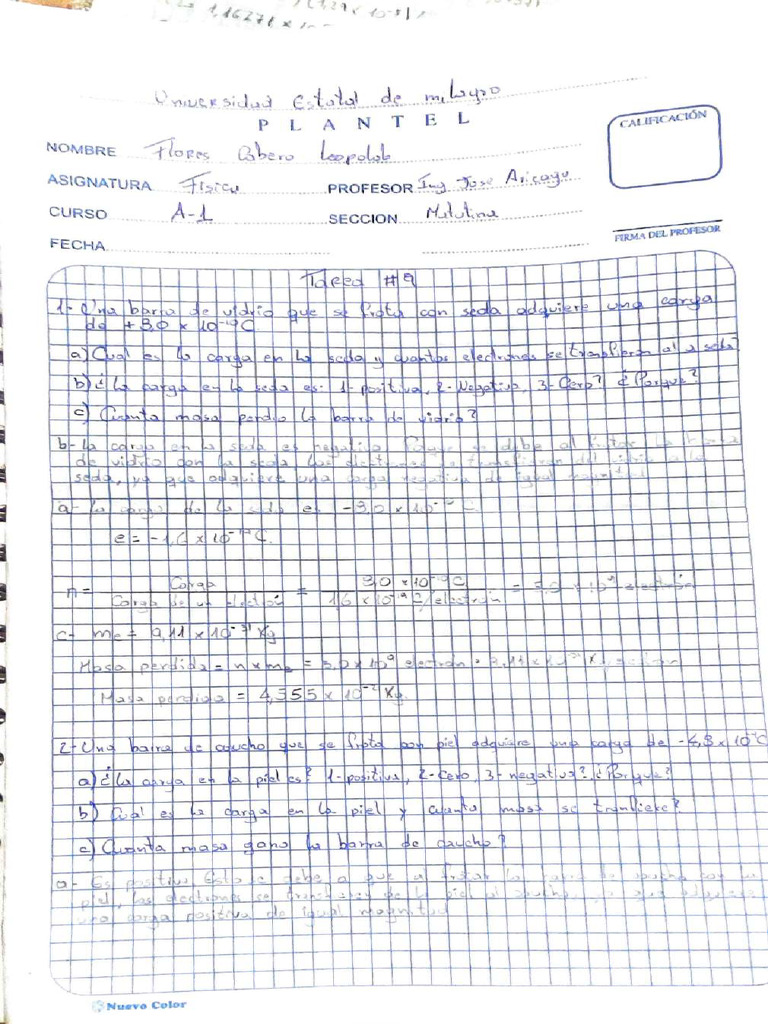 1,16271 x 10
Universidad Estatal de milagro
PLANTEL
CALIFICACIÓN
NOMBRE Flores Cabero Leopoldo
ASIGNATURA Física PROFESOR Ing Jose
CURSO A-1 SECCION Matutina
FIRMA DEL PROFESOR
FECHA
#9
1- Una barra de vidrio que se frota con seda adquiere una carga
de +3,0 x 10 C
a) Cual es la carga en la seda y cuantos electrones se transfieren a
b) ¿La carga en la seda es: 1- positiva, 2- Negativa, 3- Cero? ¿Porque?
c) Cuanta masa perdio la barra de vidrio?
b- La carga en la seda es negativa se debe al frotar la
de vidrio con la seda, los electrones se transfieren del vidrio a la
seda, ya que adquiere una carga negativa de igual magnitud
a- La carga de la seda es -3,0 x 10 C
e = -1,6 x 10 C.
n = Carga = 3,0 x 10 C = electrón
Carga de un electrón 1,6 x 10 C/electrón
c- me = 9,11 x 10-31 Kg
Masa perdida = n x me =
Masa perdida = 4,555 x 10 Kg.
2- Una barra de caucho que se frota con piel adquiere una carga de -4,3 x 10 C
a) ¿La carga en la piel es? 1- positiva, 2- Cero, 3- negativa? ¿Porque?
b) Cual es la carga en la piel y cuanta masa se tranfiere?
c) Cuanta masa gano la barra de caucho?
a- Es positiva Esto se debe a que al frotar la barra de caucho con la
piel, los electrones se de la piel al caucho, ya que
una carga positiva de igual magnitud
Nuevo Color